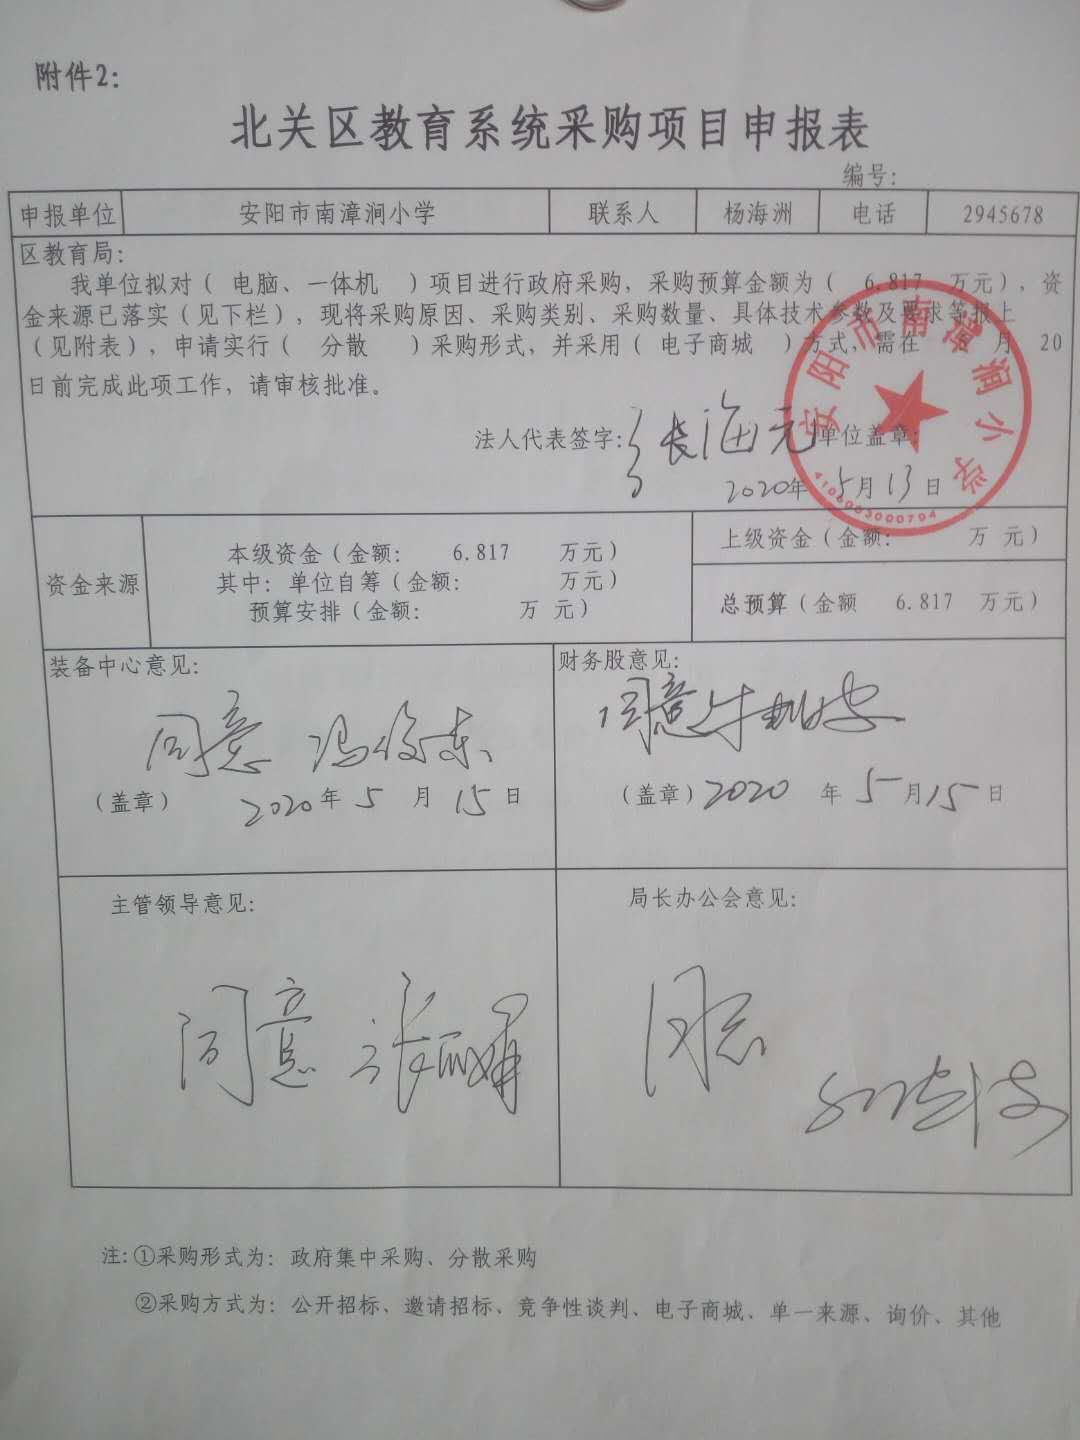 附件2：
北关区教育系统采购项目申报表
编号：
申报单位 安阳市南漳涧小学 联系人 杨海洲 电话 2945678
区教育局：
我单位拟对（ 电脑、一体机 ）项目进行政府采购，采购预算金额为（ 6.817 万元），资
金来源已落实（见下栏），现将采购原因、采购类别、采购数量、具体技术参数及要求等报上
（见附表），申请实行（ 分散 ）采购形式，并采用（ 电子商城 ）方式，需在 月 20
日前完成此项工作，请审核批准。
法人代表签字： 张海元 单位盖章：
2020年 5月 13日
安阳市南漳涧小学
4106003000794
资金来源
本级资金（金额： 6.817 万元）
其中：单位自筹（金额： 万元）
预算安排（金额： 万 元）
上级资金（金额： 万 元）
总预算（金额 6.817 万元）
装备中心意见：
同意 冯俊东
（盖章） 2020年 5 月 15日
财务股意见：
同意
（盖章）2020 年 5月15日
主管领导意见：
同意
局长办公会意见：
同意
注：①采购形式为：政府集中采购、分散采购
②采购方式为：公开招标、邀请招标、竞争性谈判、电子商城、单一来源、询价、其他